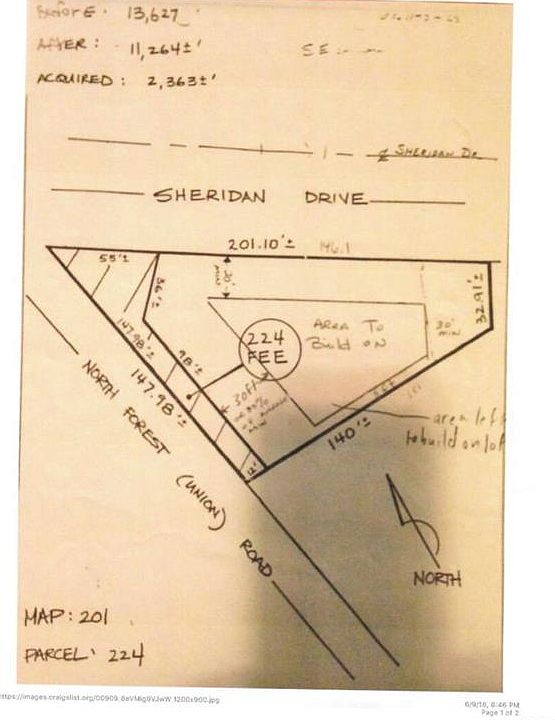 BEFORE: 13,627
AFTER: 11,264±'
ACQUIRED: 2,363±'
℄ SHERIDAN DR.
SHERIDAN DRIVE
201.10'± 146.1
55'±
36'±
30'
MIN
32.91'±
AREA TO
Build ON
30'
MIN
224
FEE
147.98'±
98'±
147.98'±
30ft
area left
to build on lot
140'±
12'
NORTH FOREST
(UNION)
ROAD
NORTH
MAP: 201
PARCEL: 224
6/9/16, 8:46 PM
Page 1 of 2